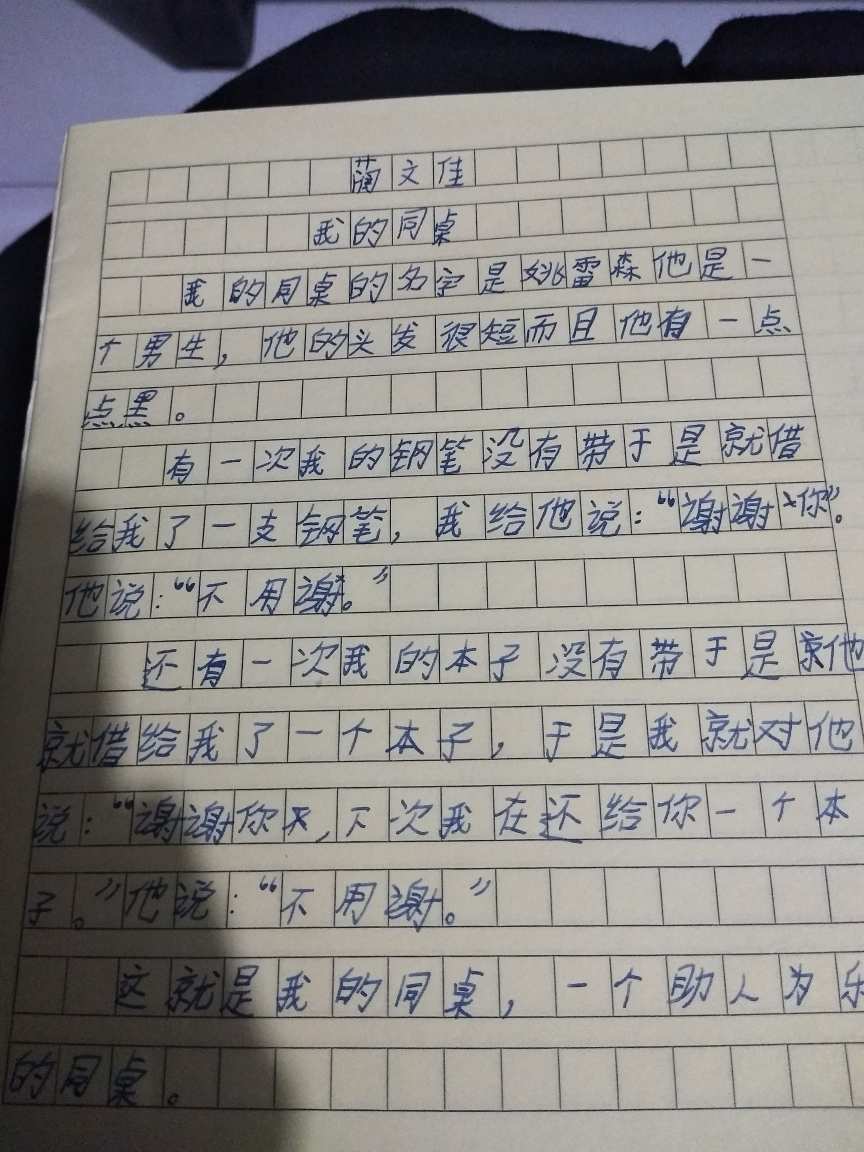 蔺文佳
我的同桌
我的同桌的名字是姚雷森他是一
个男生，他的头发很短而且他有一点
点黑。
有一次我的钢笔没有带于是就借
给我了一支钢笔，我给他说：“谢谢你”。
他说：“不用谢。”
还有一次我的本子没有带于是他
就借给我了一个本子，于是我就对他
说：“谢谢你，下次我在还给你一个本
子。”他说：“不用谢。”
这就是我的同桌，一个助人为乐
的同桌。